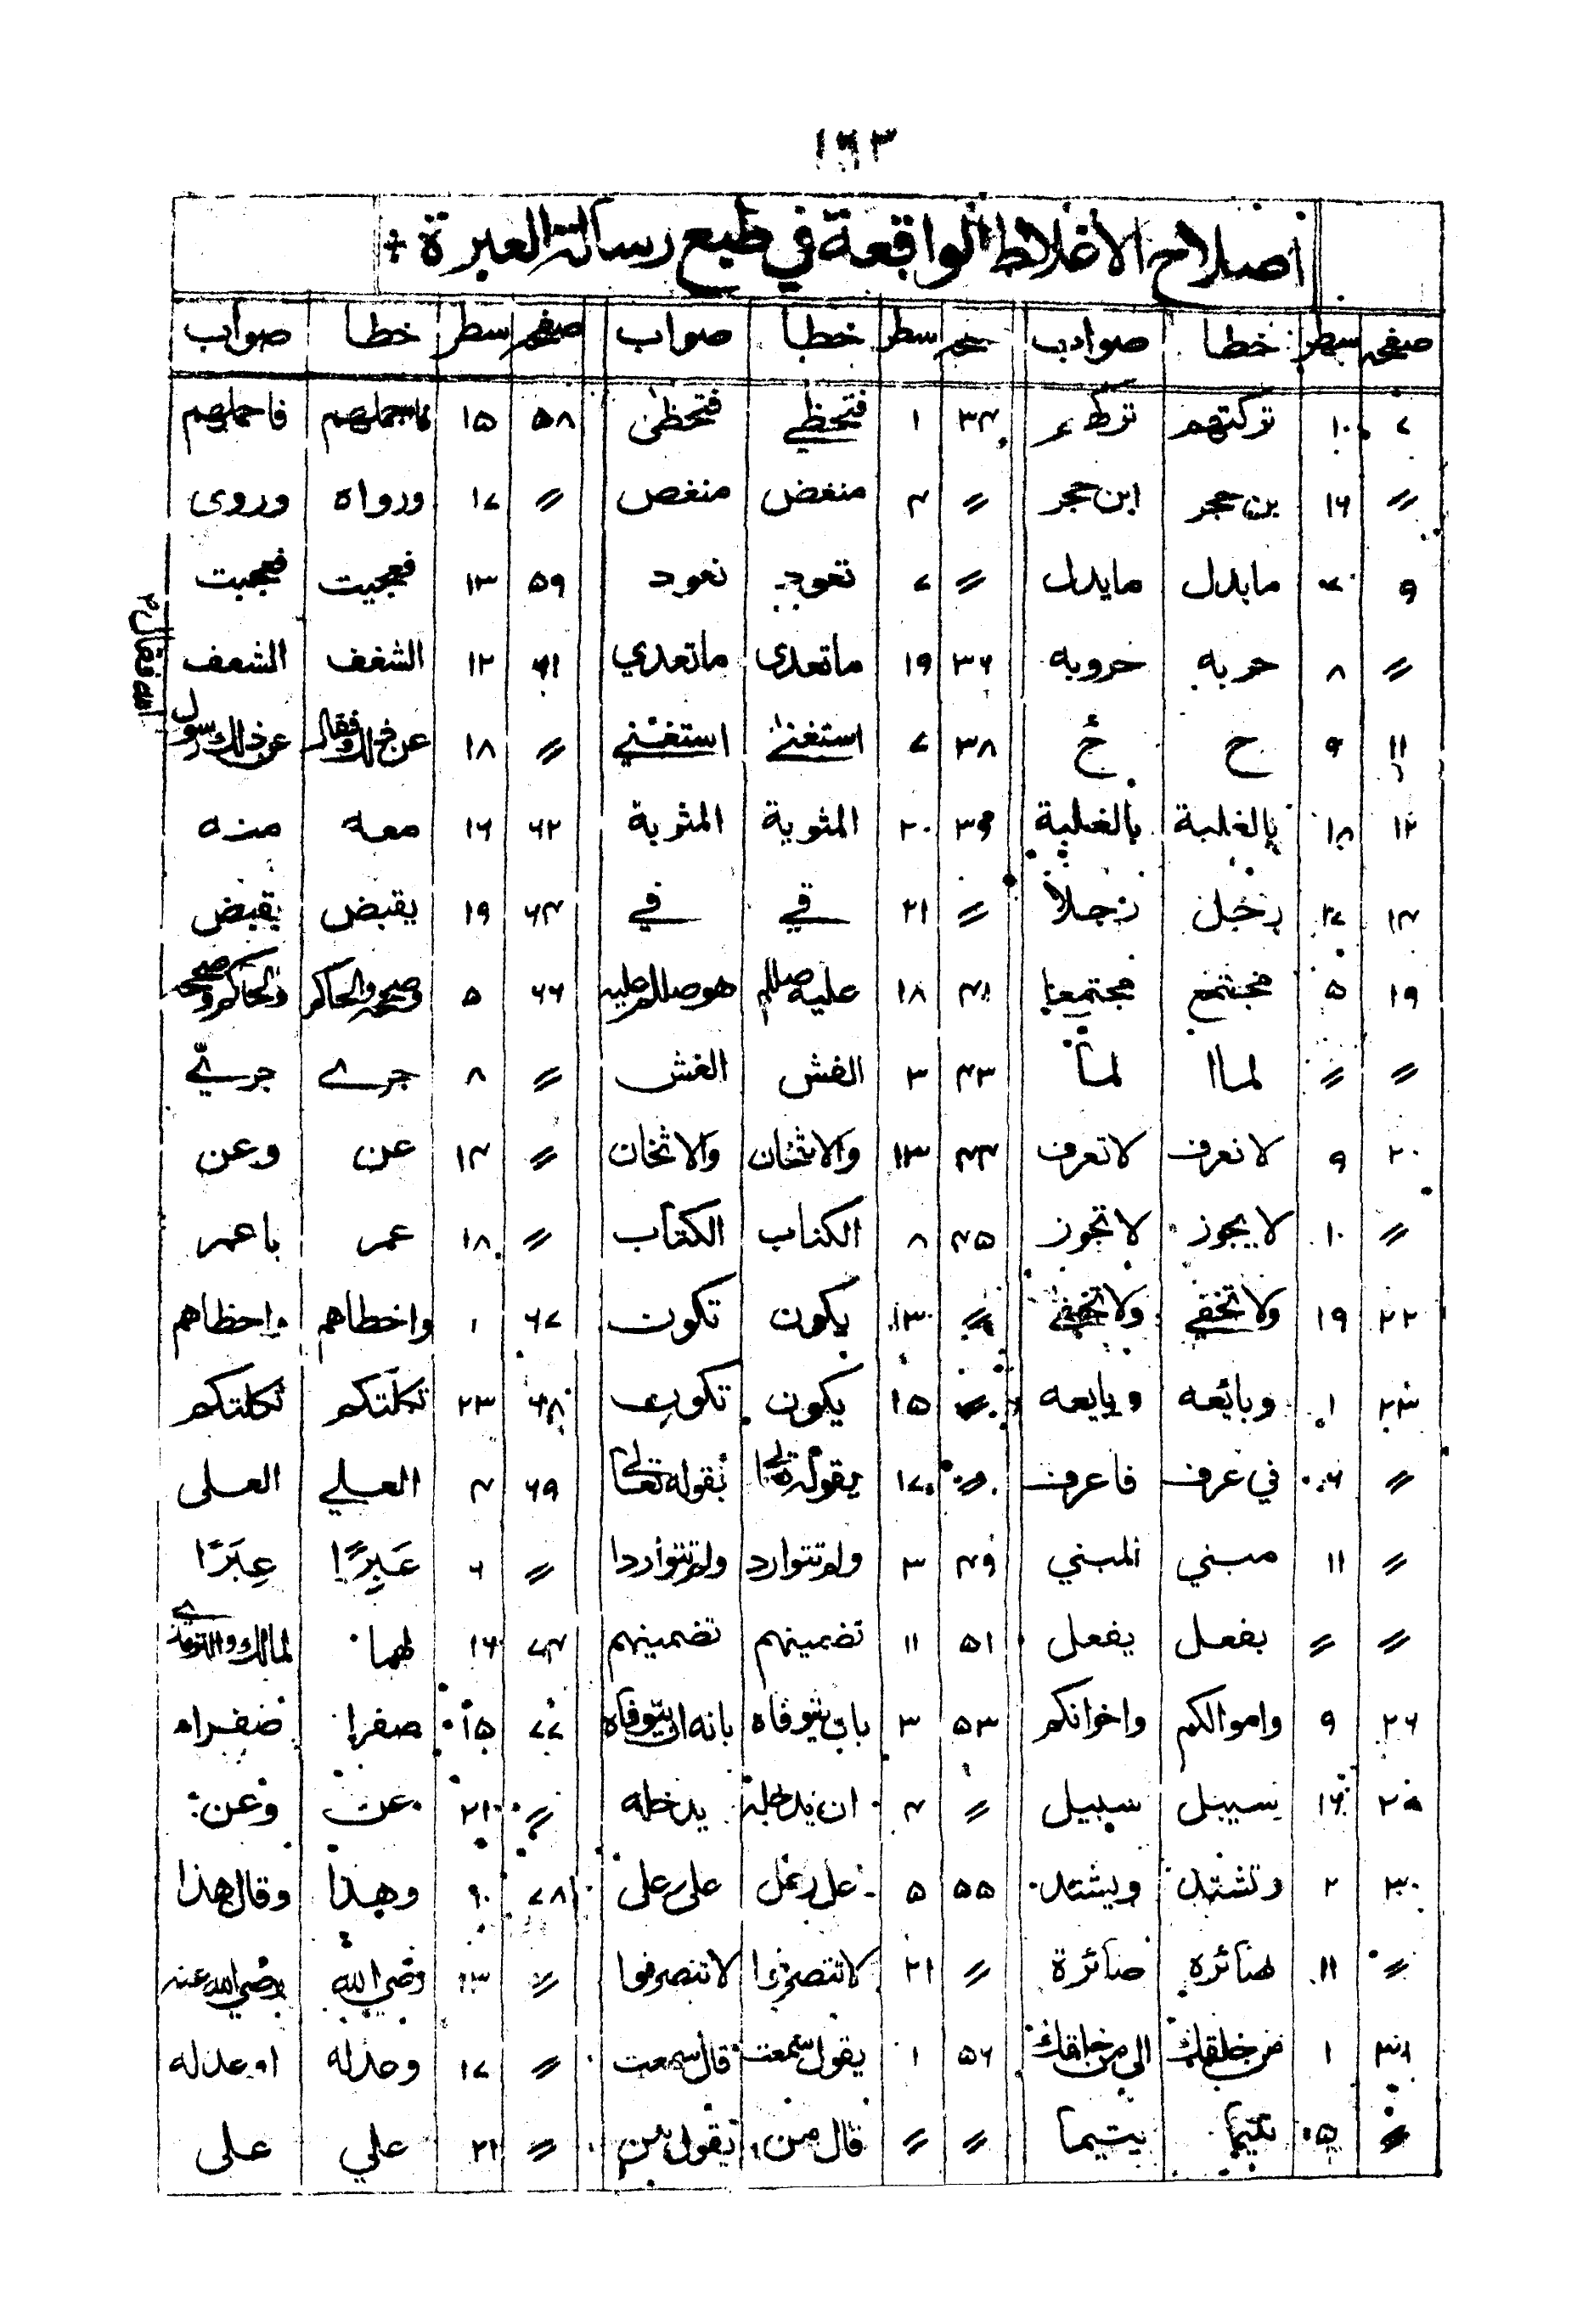 ١٦٣
اصلاح الاغلاط الواقعة في طبع رسالة العبرة
صفحه سطر خطا صواب صفحه سطر خطا صواب صفحه سطر خطا صواب
٧ ١٠ تركتهم ٣٤ ١ فتحظي فتحظى ٥٨ ١٥ فاحملهم
〃 ١٦ بن حجر ابن حجر 〃 ٤ منغض منغص 〃 ١٧ ورواه وروى
٩ ٧ مابدل مايدل 〃 ٧ تعود نعود ٥٩ ١٣ فعجيت فعجبت
〃 ٨ حربه خروبه ٣٦ ١٩ ماتعدى ماتعدي ٦١ ١٢ الشغف الشعف
١١ ٩ ح خ ٣٨ ٧ استغنى استغني 〃 ١٨ عن ذلك فقال عن ذلك رسول
الله فقال
١٢ ١٨ بالغلبة بالغلبة ٣٩ ٢٠ المثوية المثوبة ٦٢ ١٦ معه منه
١٤ رجل رجلا 〃 ٢١ في في ٦٤ ١٩ يقبض يقبض
١٩ ٥ مجتمع مجتمعا ٤١ ١٨ عليه صللم هو صللم عليه ٦٦ ٥ وصححه والحاكم والحاكم وصححه
〃 〃 لماا لما ٤٣ ٣ الفش الغش 〃 ٨ جرے جريّ
٢٠ ٩ لا نعرف لا تعرف ٤٤ ١٣ والاثخان والاثخان 〃 ١٤ عن وعن
〃 ١٠ لا يجوز لا تجوز ٤٥ ٨ الكناب الكتاب 〃 ١٨ عمر با عمر
٢٢ ١٩ ولا تخفي ولا تخفى 〃 ١٣ يكون تكون ٦٧ ١ واخطاهم واحظاهم
٢٣ ١ وبائعه وبايعه 〃 ١٥ يكون تكون ٦٨ ٢٣ تكلتكم ثكلتكم
〃 ٦ في عرف فاعرف 〃 ١٧ بقوله تعالى ٦٩ ٤ العلي العلى
〃 ١١ مبني المبني ٤٩ ٣ ولو تتوارد ولو تتواردا 〃 ٦ عَبِرًا عِبَرًا
〃 〃 بفعل يفعل ٥١ ١١ تضمينهم تضمينهم ٧٤ ١٦ لهما لمالك والترمذے
٢٦ ٩ واموالكم واخوانكم ٥٣ ٣ بان يتوفاه بانه ان يتوفاه ٧٧ ١٥ صفرا ضفراه
١٦ سبيل سبيل 〃 ٤ ان يدخله يدخله 〃 ٢١ عن وعن
٣٠ ٢ وتشتد ويشتد ٥٥ ٥ على رعل على رعلى ٧٨ ٩ وهذا وقال هذا
〃 ١١ ضائرة 〃 ٢١ لا تنصرفوا 〃 ١٣ رضي الله رضي الله عنه
٣١ ١ من خلقك الى من خلقك ٥٦ ١ يقول سمعت قال سمعت 〃 ١٧ وعدله او عدله
〃 ٥ يتيما 〃 〃 قال من يقول من 〃 ٢١ علي على